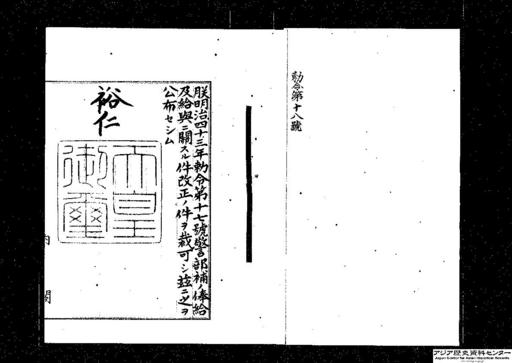 勅令第十八號
朕明治四十三年勅令第十七號警部補俸給
及給與ニ關スル件改正ノ件ヲ裁可シ茲ニ之ヲ
公布セシム
裕仁
天皇
御璽
内閣
アジア歴史資料センター
Japan Center for Asian Historical Records